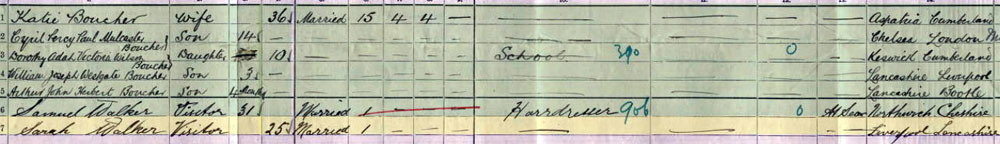 1 Katie Boucher Wife 36 Married 15 4 4 — Aspatria Cumberland
2 Cyril Percy Paul Mulcaster Boucher Son 14 — Chelsea London
3 Dorothy Adah Victoria Wilson Boucher Daughter 10 — School 390 0 Keswick Cumberland
4 William Joseph Westgate Boucher Son 3 — Lancashire Liverpool
5 Arthur John Herbert Boucher Son 4 months — Lancashire Bootle
6 Samuel Walker Visitor 31 Married 1 — Hairdresser 906 0 At Sea Northwich Cheshire
7 Sarah Walker Visitor 25 Married 1 — Liverpool Lancashire